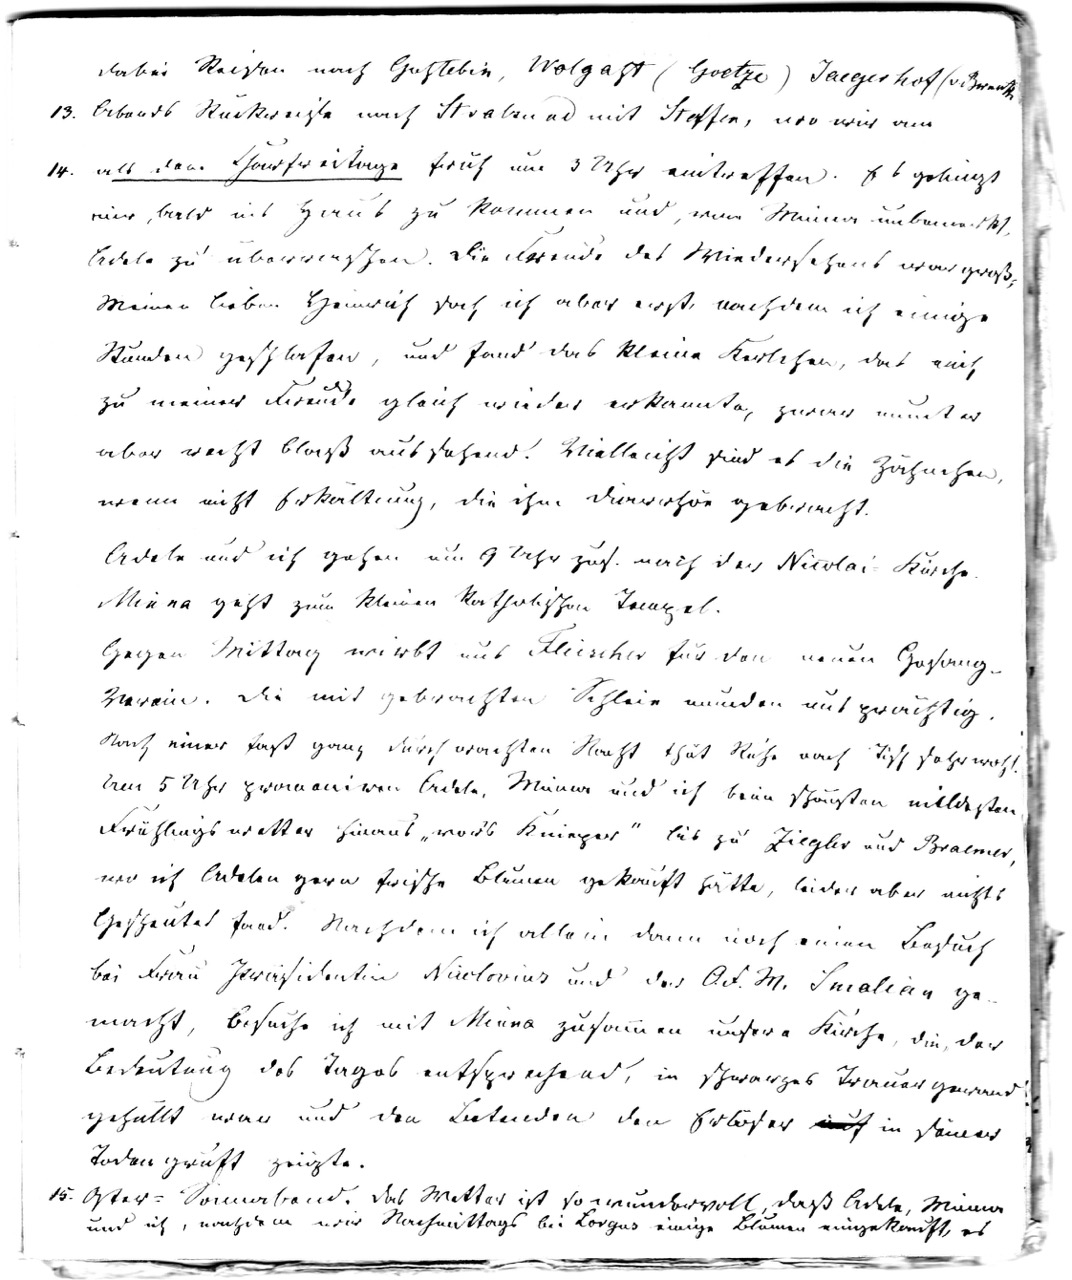 dabei Reisen nach Gustebin, Wolgast (Goetze) Jaegerhof (v
13. Abends Rückreise nach Stralsund mit Steffen, wo wir am
14. als dem Charfreitage früh um 3 Uhr eintreffen. Es gelingt
mir, bald ins Haus zu kommen und, von Minna unbemerkt,
Adele zu überraschen. Die Freude des Wiedersehens war groß;
Meinen lieben Heinrich sah ich aber erst, nachdem ich einige
Stunden geschlafen, und fand das kleine Kerlchen, das mich
zu meiner Freude gleich wieder erkannte, zwar munter
aber recht blaß aussehend. Vielleicht sind es die Zähnchen,
wenn nicht Erkältung, die ihm Diarrhöe gebracht.
Adele und ich gehen um 9 Uhr zus. nach der Nicolai-Kirche.
Minna geht zum kleinen katholischen Tempel.
Gegen Mittag wirbt uns Fleischer für den neuen Gesang-
Verein. Die mit gebrachten Schleie munden uns prächtig.
Nach einer fast ganz durchwachten Nacht thut Ruhe nach Tisch sehr wohl.
Um 5 Uhr promeniren Adele, Minna und ich beim schönsten mildesten
Frühlingswetter hinaus „vor's Knieper" bis zu Ziegler und Braemer,
wo ich Adelen gern frische Blumen gekauft hätte, leider aber nichts
Gescheutes fand. Nachdem ich allein dann noch einen Besuch
bei Frau Präsidentin Nicolovius und der O.F.M. Smalian ge-
macht, besuche ich mit Minna zusammen unsere Kirche, die, der
Bedeutung des Tages entsprechend, in schwarzes Trauergewand
gehüllt war und den Betenden den Erlöser in seiner
Todengruft zeigte.
15. Oster-Sonnabend. Das Wetter ist so wundervoll, daß Adele, Minna
und ich, nachdem wir Nachmittags bei Lorgus einige Blumen eingekauft, es